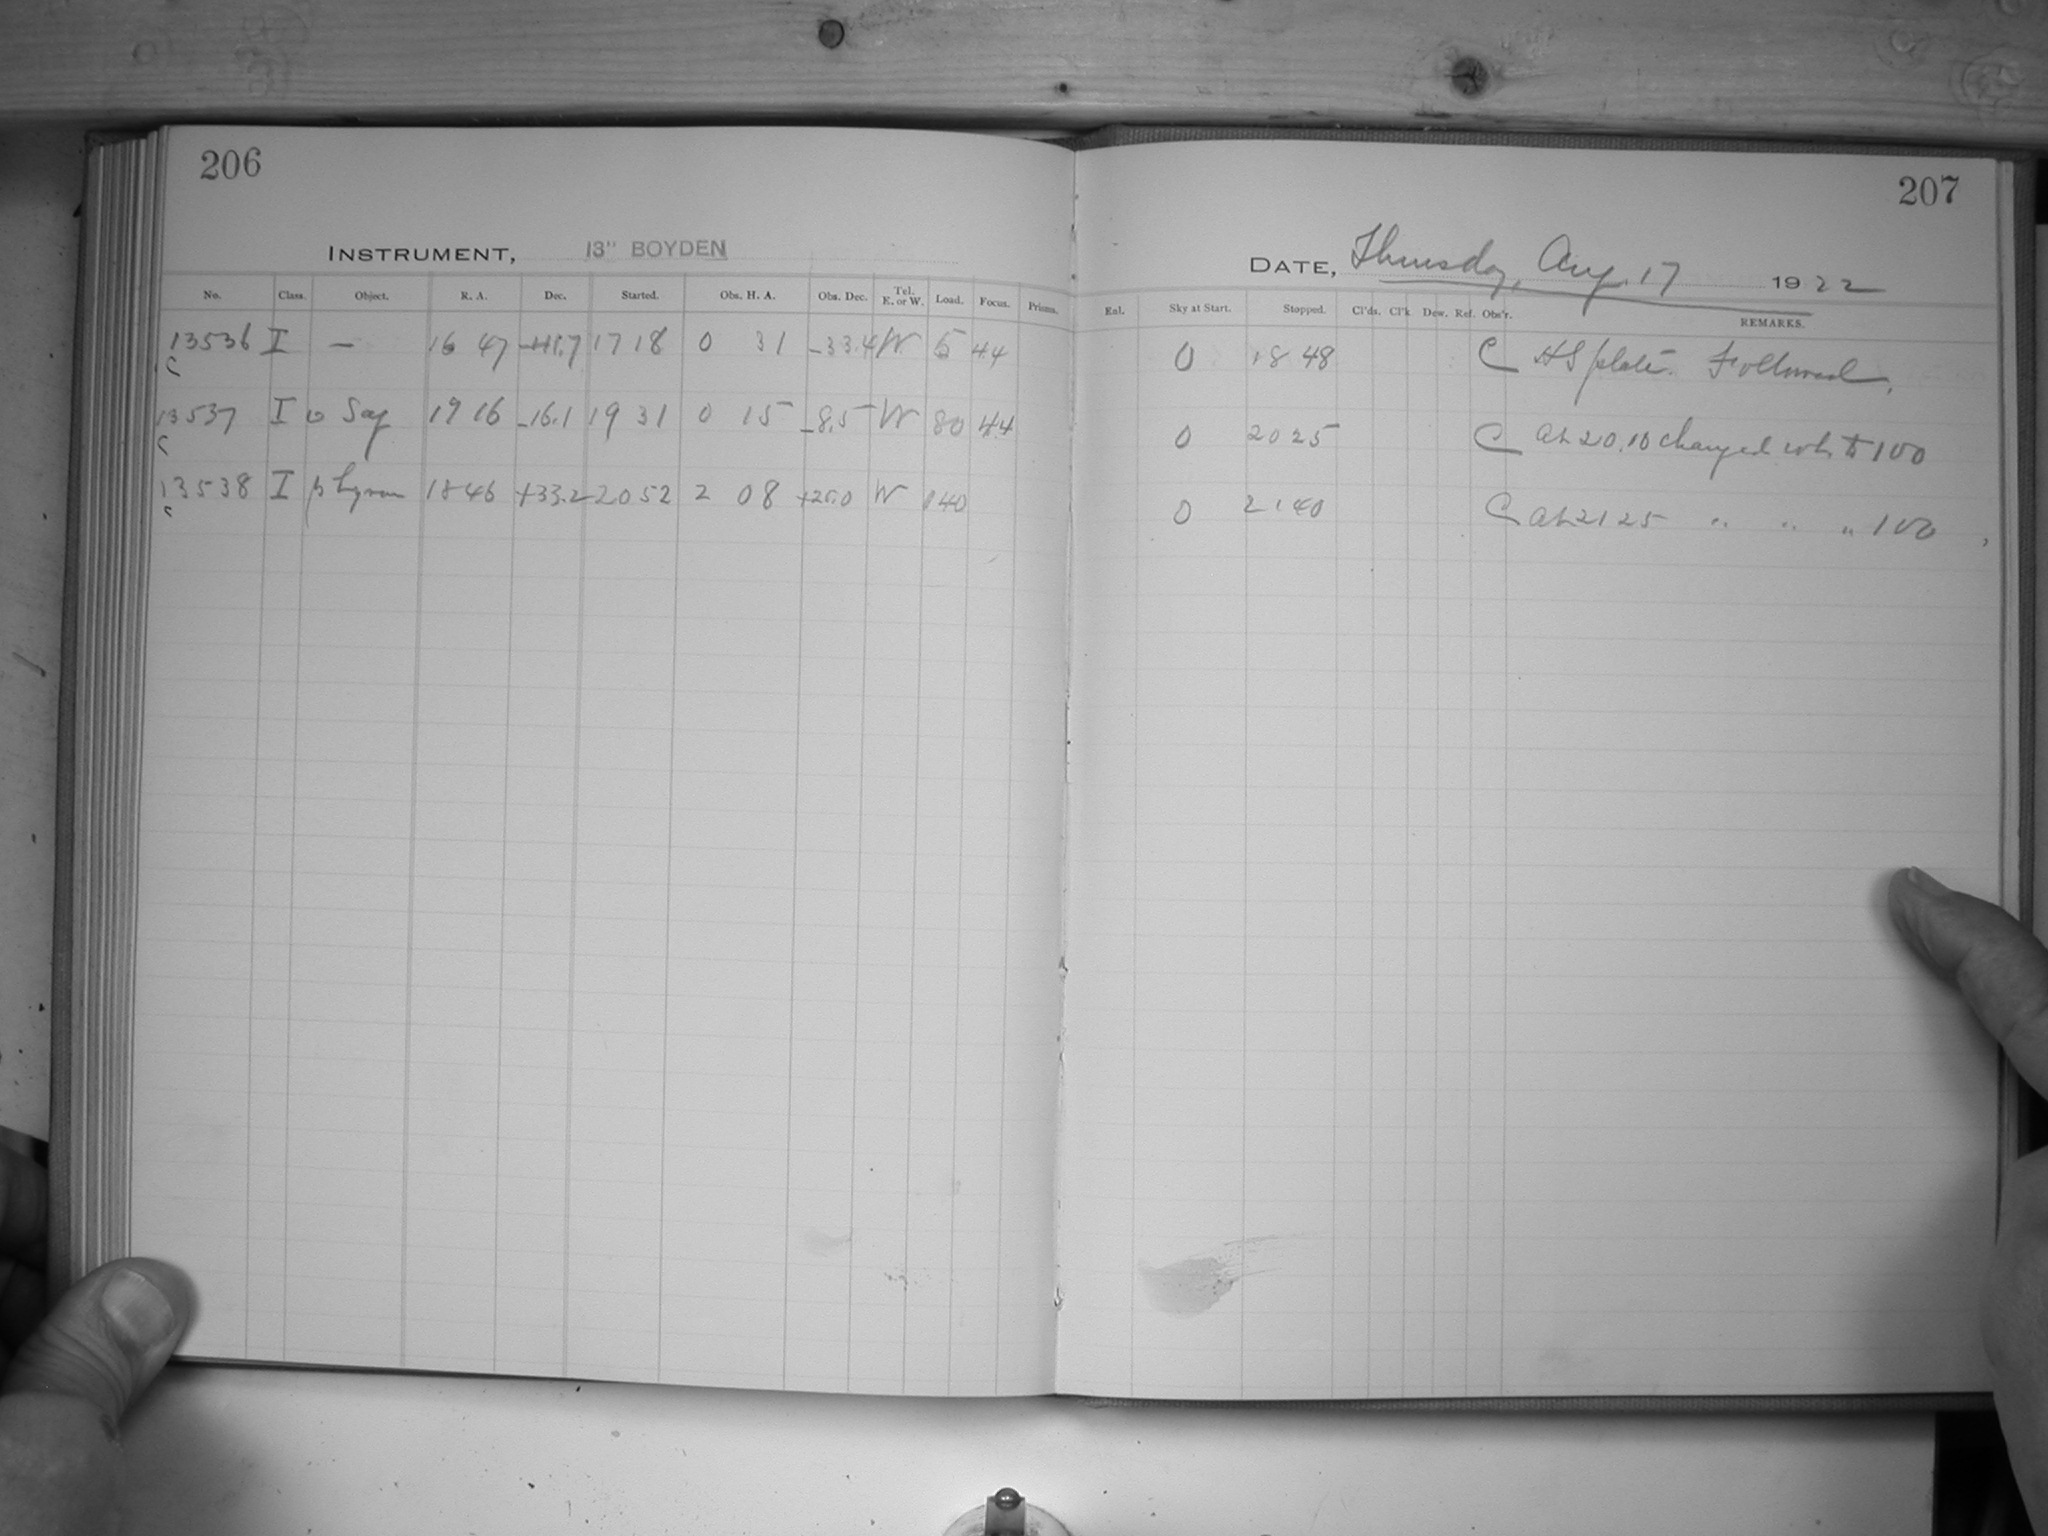 206
INSTRUMENT, 13" BOYDEN
No. Class. Object. R. A. Dec. Started. Obs. H. A. Obs. Dec. Tel. E. or W. Load. Focus. Prisms.
13536 I — 16 47 17 18 0 31 -33.4 W 5 44
C
13537 I υ Sag 19 16 -16.1 19 31 0 15 -8.5 W 80 44
C
13538 I β Lyrae 18 46 +33.2 20 52 2 08 W 140
C
207
DATE, Thursday, Aug. 17 1922
Eal. Sky at Start. Stopped. Cl'ds. Cl'k Dew. Ref. Obs'r. REMARKS.
0 18 48 C HS plate. Followed.
0 20 25 C at 20.10 changed wh. to 100
0 21 40 C at 21 25 " " " 100